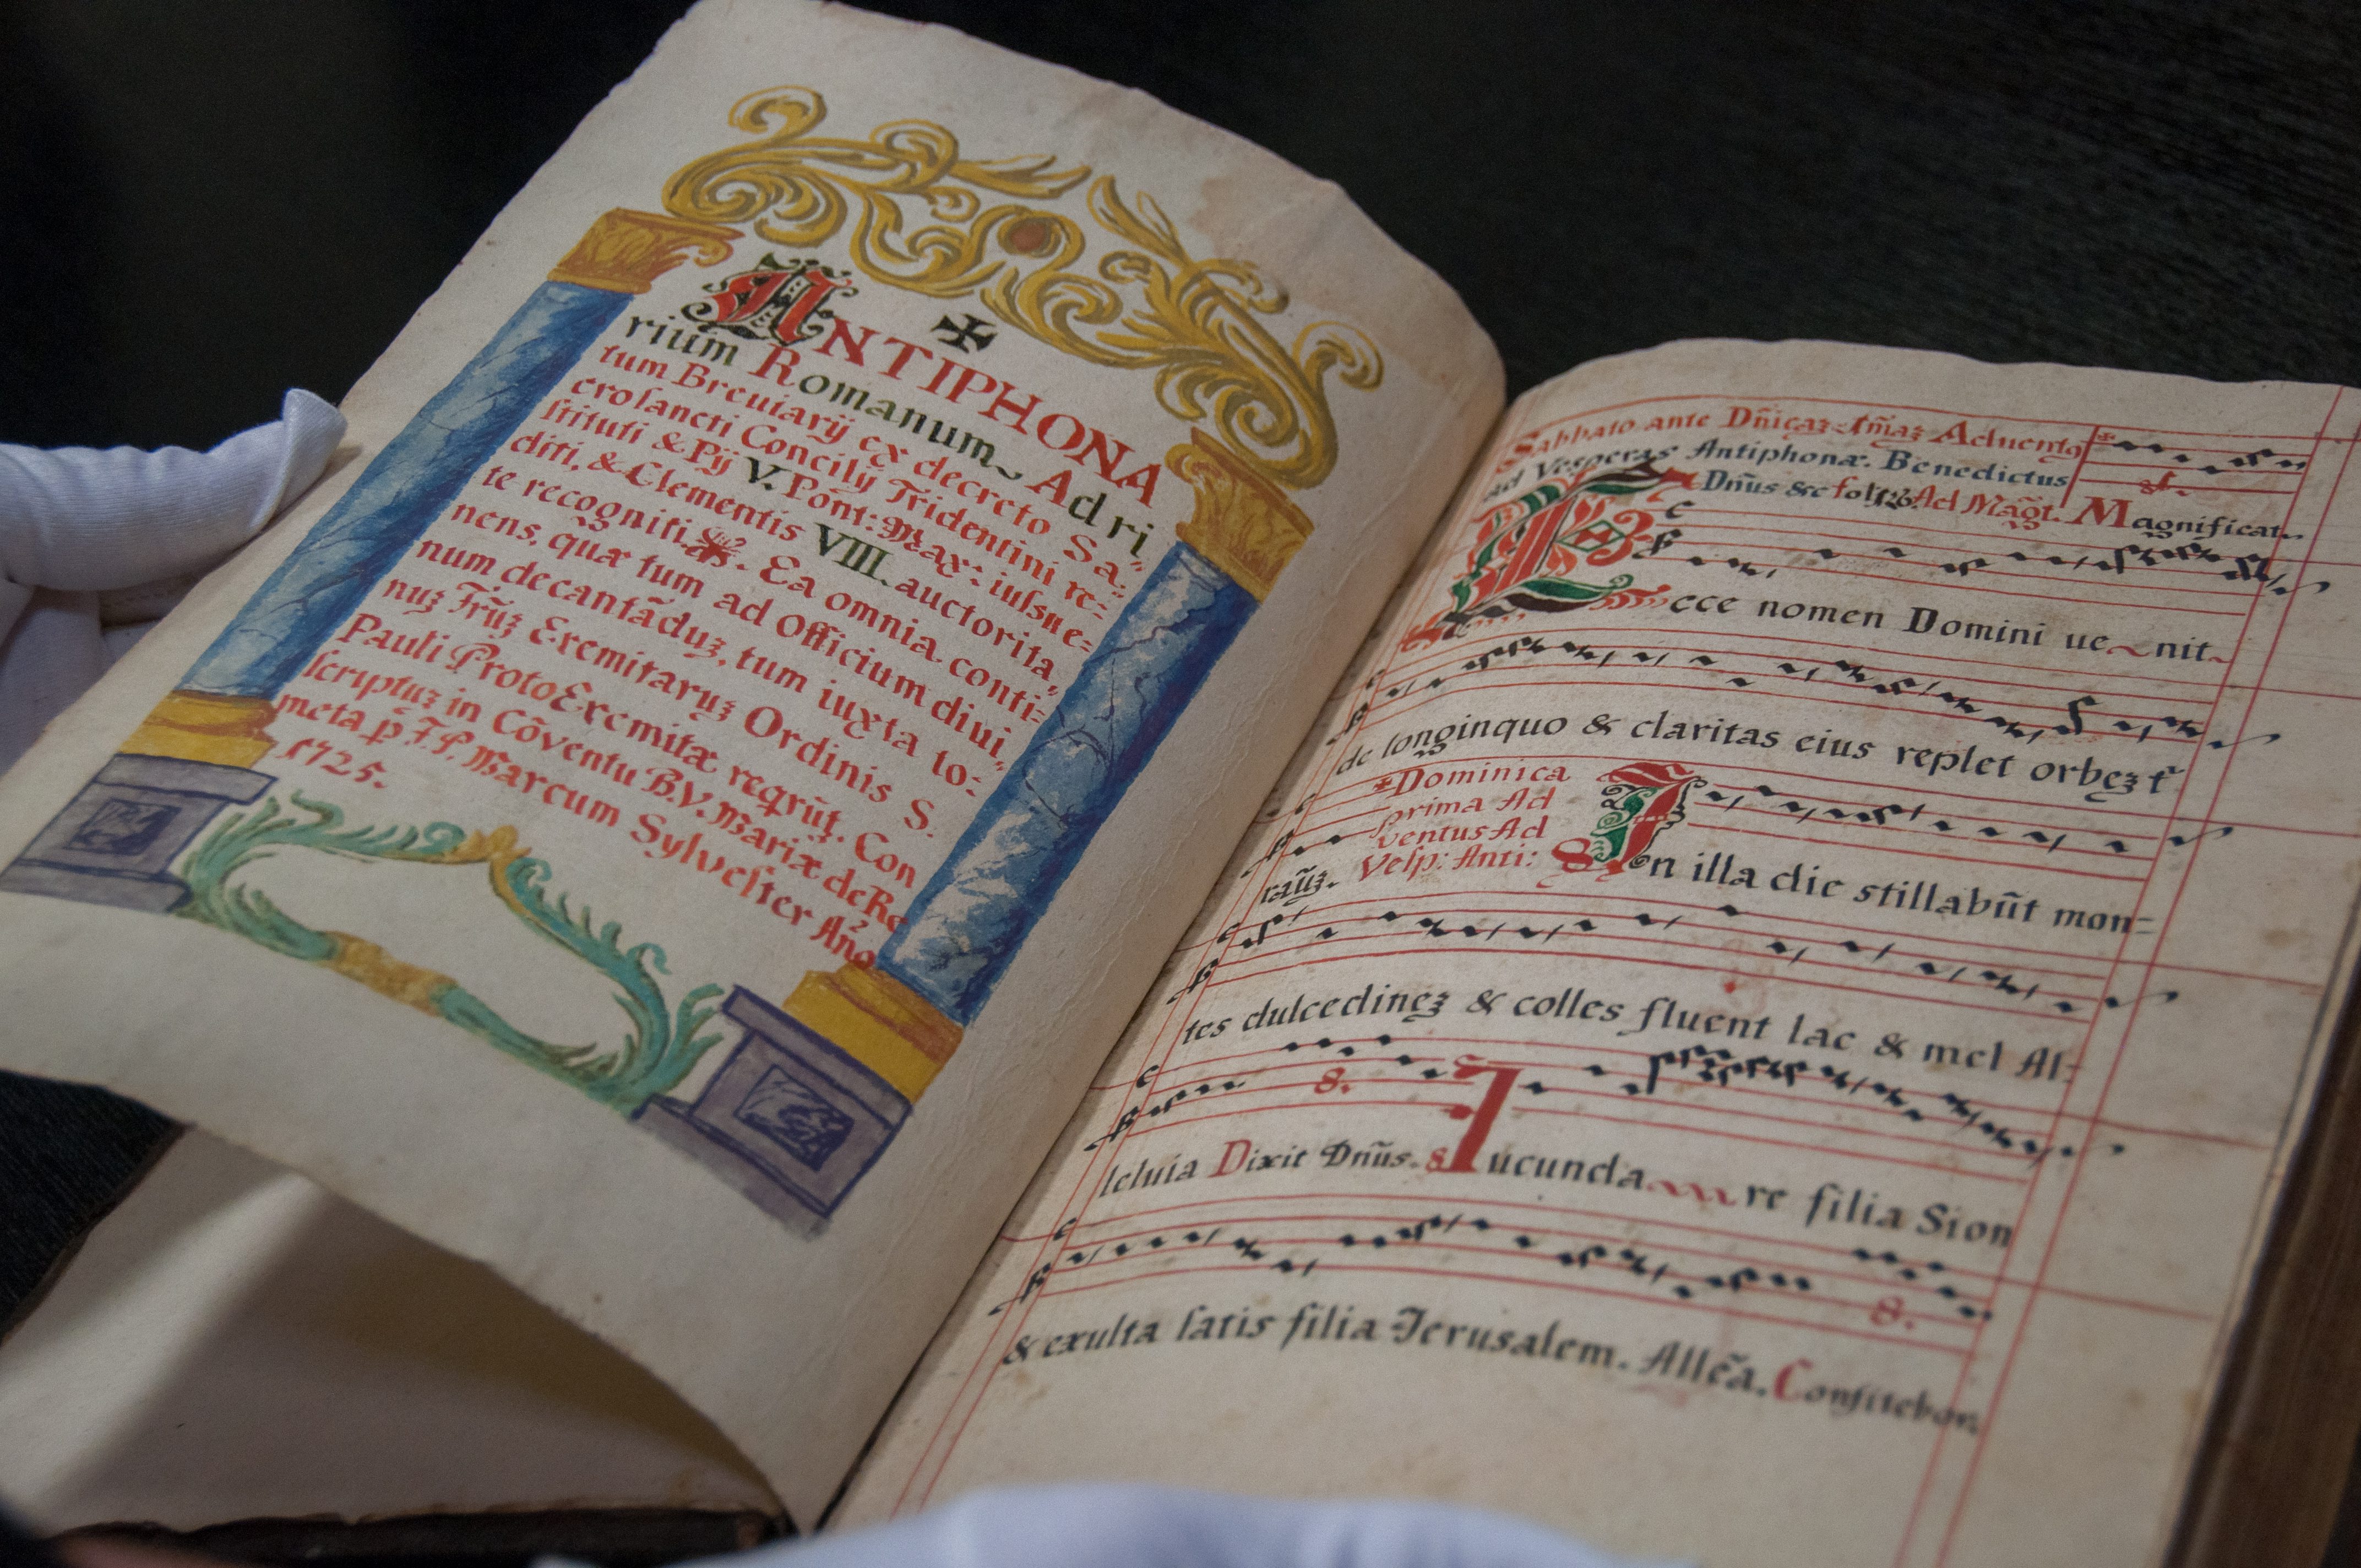 ANTIPHONA
rium Romanum Ad ri
tum Breuiarij ex decreto Sa
crosancti Concilij Tridentini re-
stituti & Pij V. Pont: Max: iussu e-
diti, & Clementis VIII. auctorita
te recogniti. Ea omnia conti-
nens, quæ tum ad Officium diui
num decantãduʒ, tum iuxta to:
nuʒ Fr̃uʒ Eremitaruʒ Ordinis S.
Pauli ProtoEremitæ reqrũt. Con
scriptuʒ in Cõventu B.V. Mariæ de Re
meta p F.P. Marcum Sylvester Añ̃o
1725.
Sabbato ante Dñicaʒ Aduento
ad Vesperas Antiphonæ. Benedictus
Dñus &c Ad Mag̃t. Magnificat
Ecce nomen Domini ue nit
de longinquo & claritas eius replet orbeʒ
Dominica
prima Ad
ventus Ad
Vesp: Anti: 8
rãuʒ. In illa die stillabũt mon=
tes dulcedineʒ & colles fluent lac & mel Al:
8.
leluia Dixit Dñus. 8 Iucunda re filia Sion
8.
& exulta satis filia Jerusalem. Allẽa. Confitebor